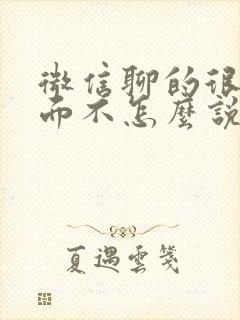 微信聊的很
而不怎麼說
夏遇雲箋